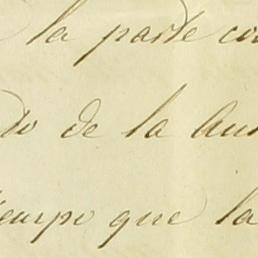 la parte co
do de la Au
tiempo que la